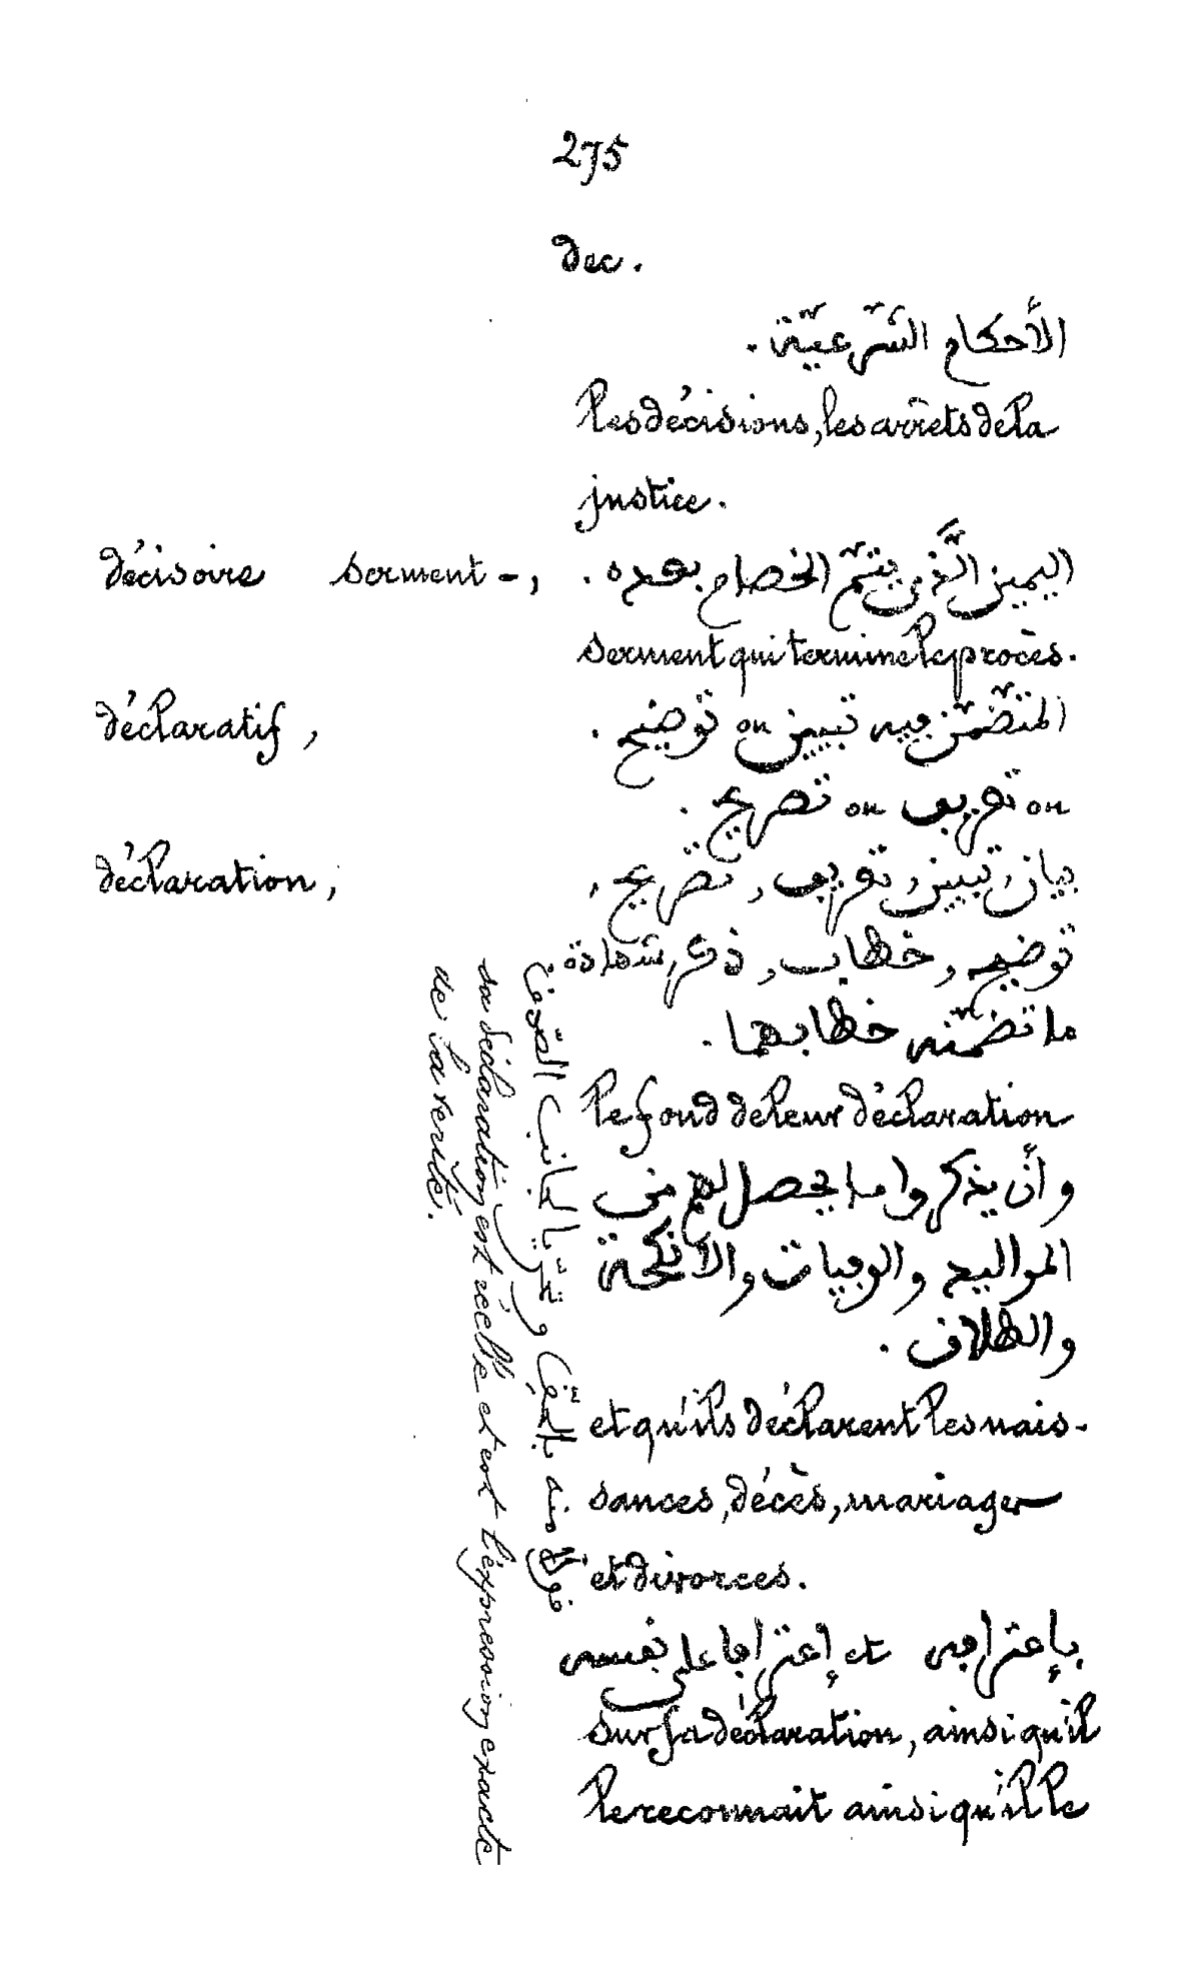 275
dec.
الأَحكام الشّرعيّة .
les décisions, les arrêts de la
justice.
décisoire serment -, اليمين الَّذي يتمّ الخصام بعده .
serment qui termine le procès.
déclaratif, المتضمّن فيه تبيين ou توضيح .
ou تعريف ou تصريح .
déclaration, بيان, تبيين, تعريف, تصريح,
توضيح, خطاب, ذكر, شهادة .
ما تضمّنه خطابهما .
le fond de leur déclaration
وأن يذكروا ما يحصل لهم من
المواليد والوفيات والأنكحة
والطلاق .
et qu'ils déclarent les nais-
sances, décès, mariages
et divorces.
بإعترافه et إعترافا على نفسه
sur sa déclaration, ainsi qu'il
le reconnait ainsi qu'il le
منه بالحقّ و تحرّيا لجانب الصّدق .
sa déclaration est réelle et est l'expression exacte
de la verité.